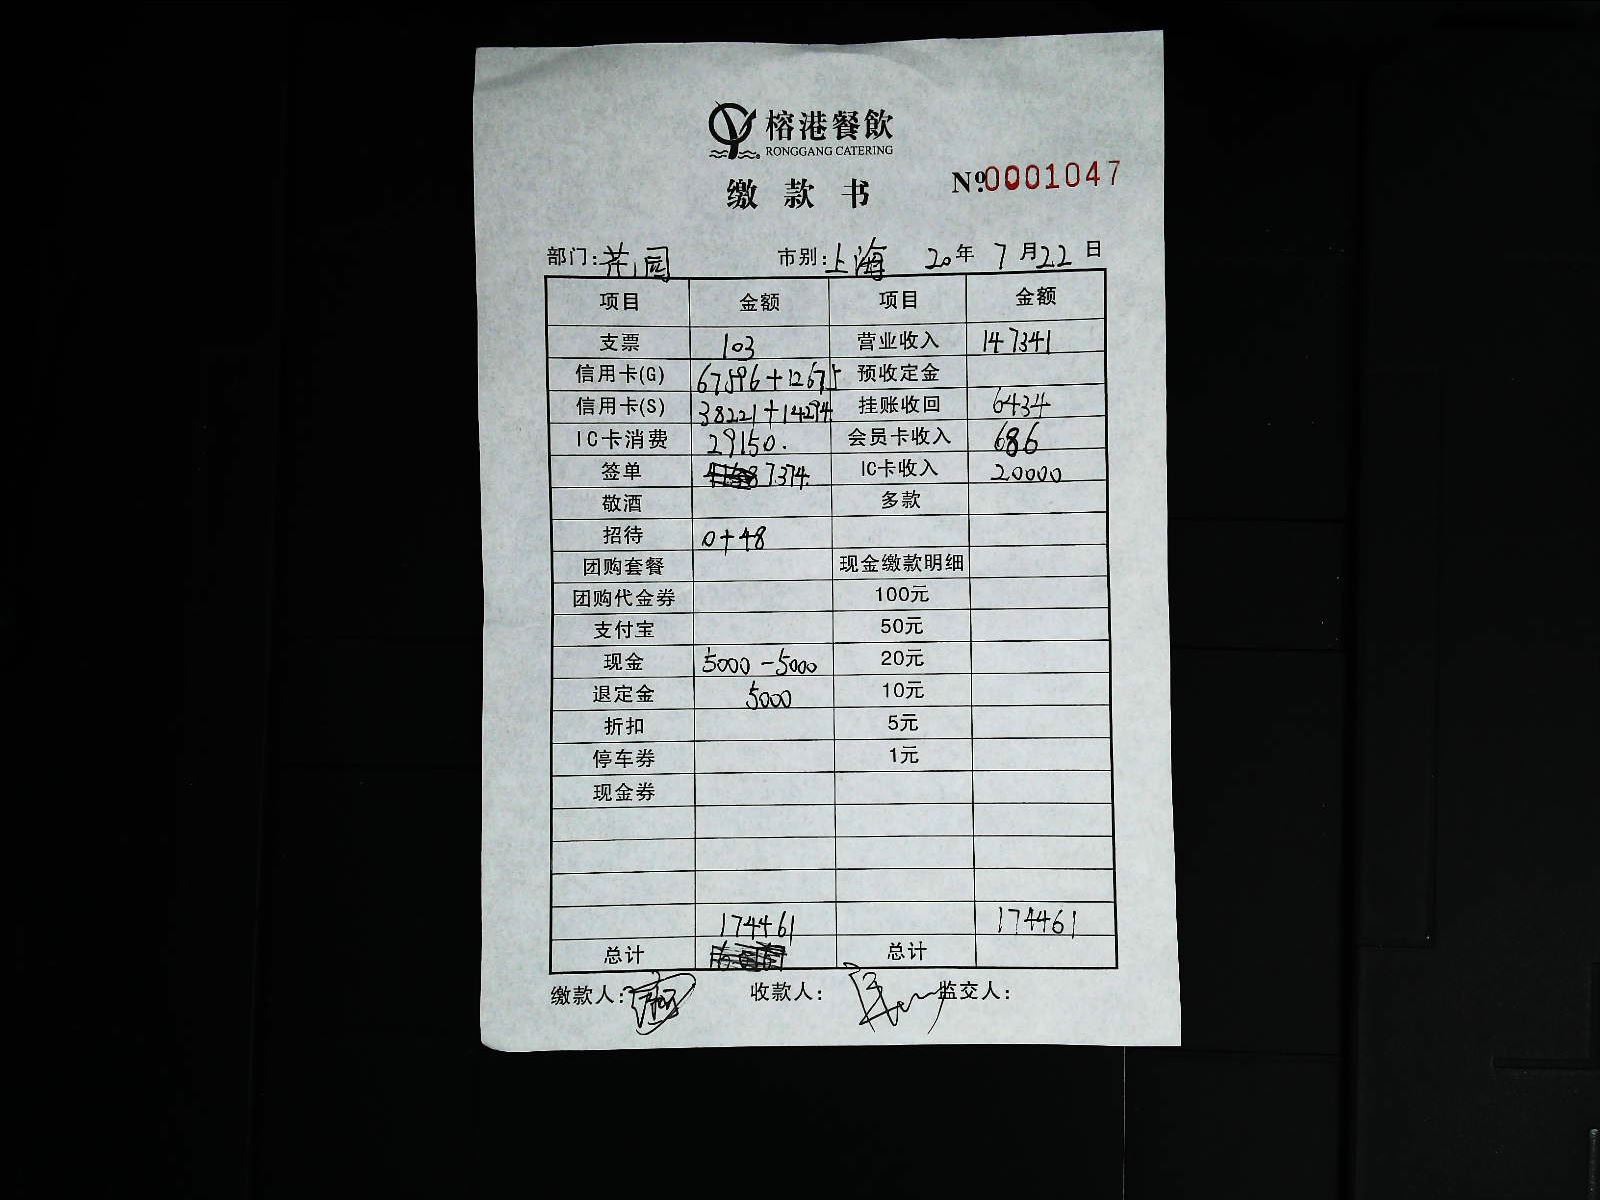 榕港餐飲
RONGGANG CATERING
缴款书 Nº 0001047
部门: 花园 市别: 上海 20年 7月22日
项目 金额 项目 金额
支票 103 营业收入 147341
信用卡(G) 67596+12675 预收定金
信用卡(S) 38221+14294 挂账收回 6434
IC卡消费 29150. 会员卡收入 686
签单 7374. IC卡收入 20000
敬酒 多款
招待 0+48
团购套餐 现金缴款明细
团购代金券 100元
支付宝 50元
现金 5000-5000 20元
退定金 5000 10元
折扣 5元
停车券 1元
现金券
174461 174461
总计 总计
缴款人: 收款人: 监交人: